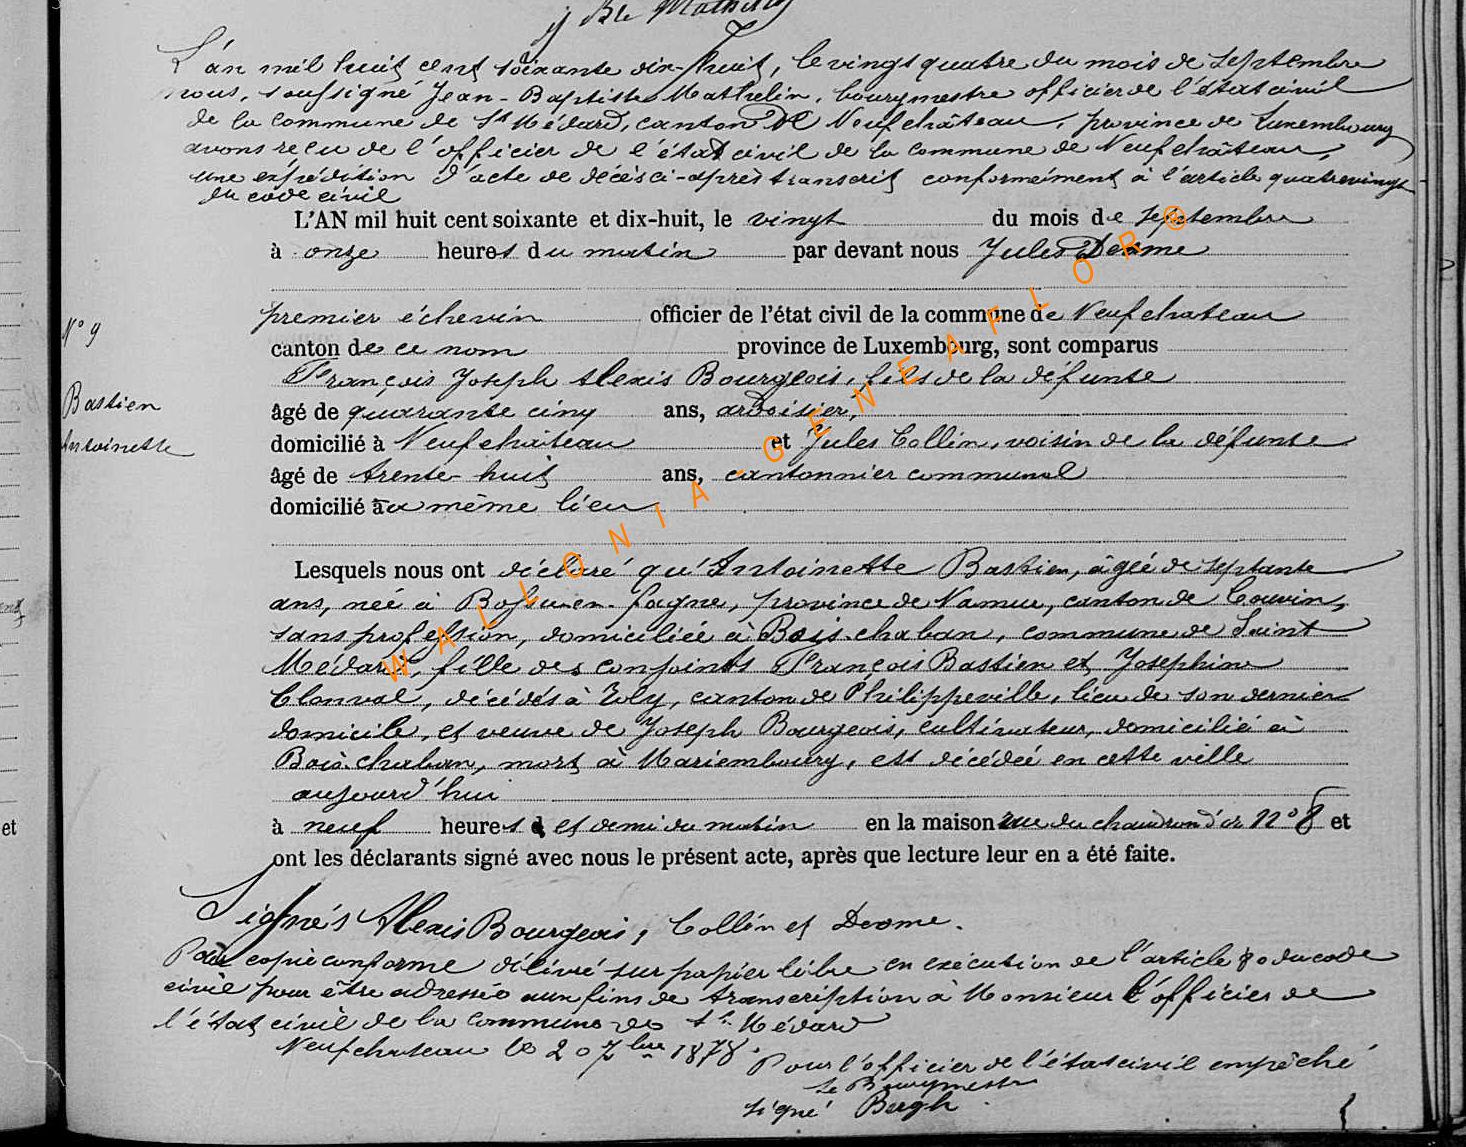 Jn Bte Mathelin
L'an mil huit cent soixante dix-huit, le vingt quatre du mois de Septembre
nous, soussigné Jean-Baptiste Mathelin, bourgmestre officier de l'état civil
de la commune de St Médard, canton de Neufchâteau, province de Luxembourg
avons reçu de l'officier de l'état civil de la commune de Neufchâteau,
une expédition d'acte de décès ci-après transcrit conformément à l'article quatrevingt
du code civil
L'AN mil huit cent soixante et dix-huit, le vingt du mois de Septembre
à onze heures du matin par devant nous Jules Deome
premier échevin officier de l'état civil de la commune de Neufchateau
N° 9
canton de ce nom province de Luxembourg, sont comparus
François Joseph Alexis Bourgeois, fils de la défunte
Bastien
âgé de quarante cinq ans, ardoisier,
Antoinette
domicilié à Neufchâteau et Jules Collin, voisin de la défunte
âgé de trente-huit ans, cantonnier communal
domicilié au même lieu
Lesquels nous ont déclaré qu'Antoinette Bastien, âgée de septante
ans, née à Boussu-en-fagne, province de Namur, canton de Couvin,
sans profession, domiciliée à Bois-chaban, commune de Saint
Médard, fille des conjoints François Bastien et Josephine
Clonval, décédés à Roly, canton de Philippeville, lieu de son dernier
domicile, et veuve de Joseph Bourgeois, cultivateur, domicilié à
Bois-chaban, mort à Mariembourg, est décédée en cette ville
aujourd'hui
à neuf heures et demi du matin en la maison rue du chaudron d'or N° 8 et
ont les déclarants signé avec nous le présent acte, après que lecture leur en a été faite.
Signés Alexis Bourgeois, Collin et Deome.
Pour copie conforme délivré sur papier libre en exécution de l'article 80 du code
civil pour être adressée aux fins de transcription à Monsieur l'officier de
l'état civil de la commune de St Médard
Neufchateau le 20 7bre 1878.
Pour l'officier de l'état civil empêché
Le Bourgmestre
signé Bergh.
et
WALLONIA-GENEAFLOR®